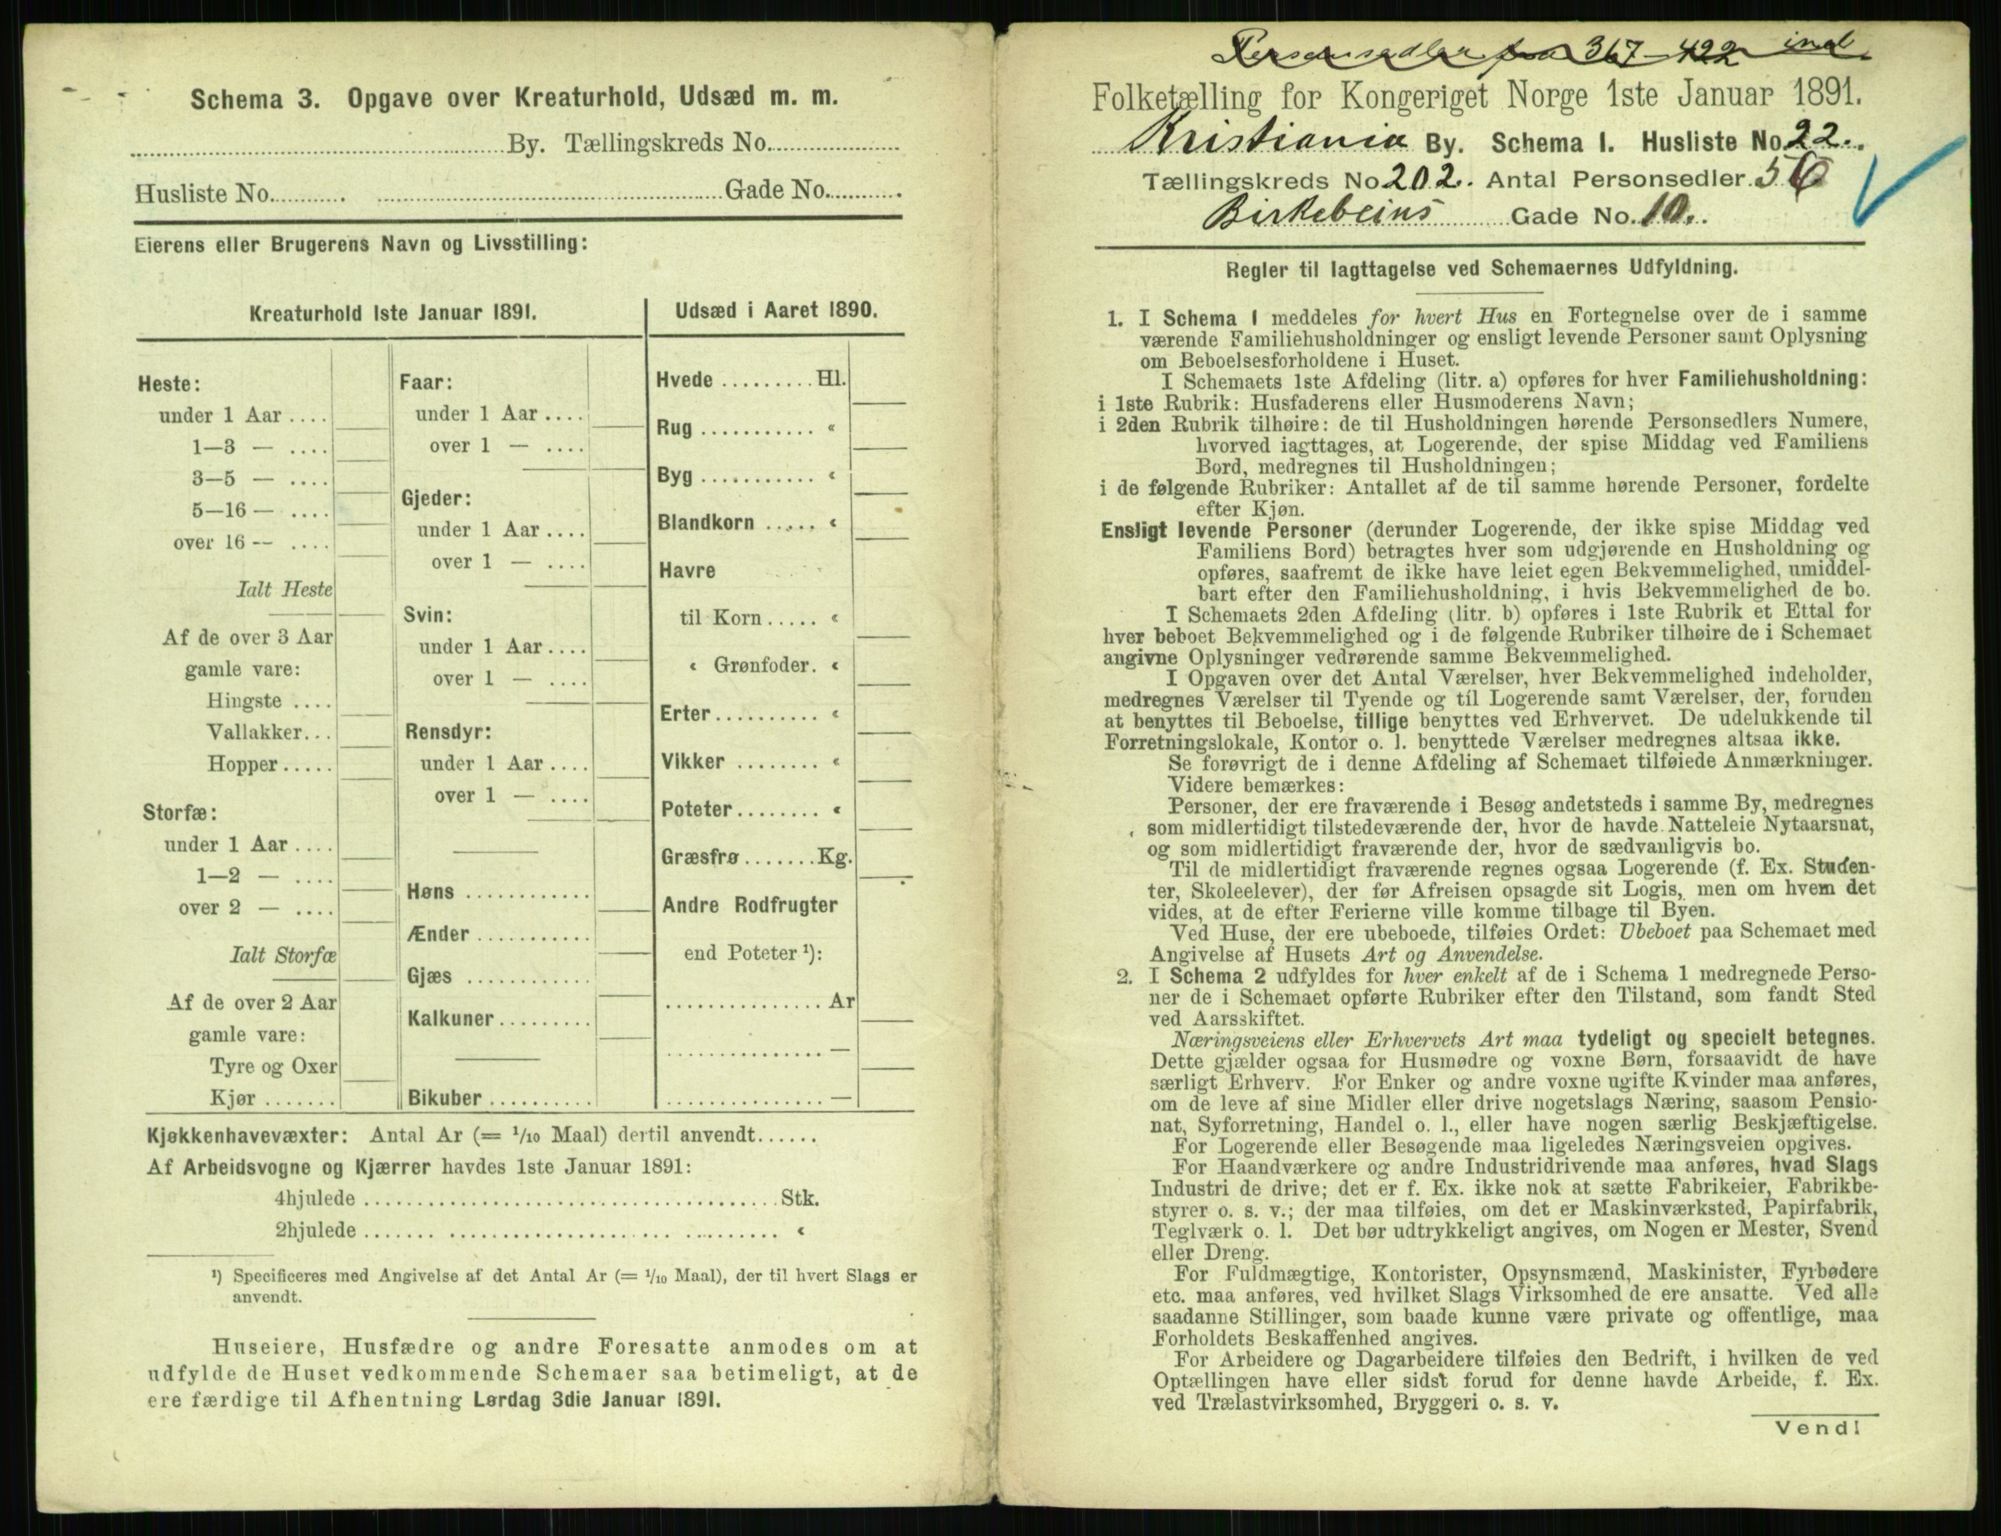 Schema 3. Opgave over Kreaturhold, Udsæd m. m.
By. Tællingskreds No.
Husliste No. Gade No.
Eierens eller Brugerens Navn og Livsstilling:
Kreaturhold 1ste Januar 1891.
Heste:
under 1 Aar ....
1—3 — ....
3—5 — ....
5—16 — ....
over 16 — ....
Ialt Heste
Af de over 3 Aar
gamle vare:
Hingste ....
Vallakker...
Hopper.....
Storfæ:
under 1 Aar ....
1—2 — ....
over 2 — ....
Ialt Storfæ
Af de over 2 Aar
gamle vare:
Tyre og Oxer
Kjør .......
Faar:
under 1 Aar ....
over 1 — ....
Gjeder:
under 1 Aar ....
over 1 — ....
Svin:
under 1 Aar ....
over 1 — ....
Rensdyr:
under 1 Aar ....
over 1 — ....
Høns ............
Ænder ...........
Gjæs ............
Kalkuner.........
Bikuber ..........
Udsæd i Aaret 1890.
Hvede .........Hl.
Rug ........... «
Byg ........... «
Blandkorn ..... «
Havre
til Korn ..... «
« Grønfoder. «
Erter.......... «
Vikker ........ «
Poteter........ «
Græsfrø.......Kg.
Andre Rodfrugter
end Poteter ¹):
............... Ar
............... —
............... —
Kjøkkenhavevæxter: Antal Ar (= 1/10 Maal) dertil anvendt......
Af Arbeidsvogne og Kjærrer havdes 1ste Januar 1891:
4hjulede ........................................Stk.
2hjulede ........................................ «
¹) Specificeres med Angivelse af det Antal Ar (= 1/10 Maal), der til hvert Slags er
anvendt.
Huseiere, Husfædre og andre Foresatte anmodes om at
udfylde de Huset vedkommende Schemaer saa betimeligt, at de
ere færdige til Afhentning Lørdag 3die Januar 1891.
Personsedler fra 367-422 incl
Folketælling for Kongeriget Norge 1ste Januar 1891.
Kristiania By. Schema 1. Husliste No. 22.
Tællingskreds No 202. Antal Personsedler. 56
Birkebeins Gade No. 10.
Regler til Iagttagelse ved Schemaernes Udfyldning.
1. I Schema 1 meddeles for hvert Hus en Fortegnelse over de i samme
værende Familiehusholdninger og ensligt levende Personer samt Oplysning
om Beboelsesforholdene i Huset.
I Schemaets 1ste Afdeling (litr. a) opføres for hver Familiehusholdning:
i 1ste Rubrik: Husfaderens eller Husmoderens Navn;
i 2den Rubrik tilhøire: de til Husholdningen hørende Personsedlers Numere,
hvorved iagttages, at Logerende, der spise Middag ved Familiens
Bord, medregnes til Husholdningen;
i de følgende Rubriker: Antallet af de til samme hørende Personer, fordelte
efter Kjøn.
Ensligt levende Personer (derunder Logerende, der ikke spise Middag ved
Familiens Bord) betragtes hver som udgjørende en Husholdning og
opføres, saafremt de ikke have leiet egen Bekvemmelighed, umiddel-
bart efter den Familiehusholdning, i hvis Bekvemmelighed de bo.
I Schemaets 2den Afdeling (litr. b) opføres i 1ste Rubrik et Ettal for
hver beboet Bekvemmelighed og i de følgende Rubriker tilhøire de i Schemaet
angivne Oplysninger vedrørende samme Bekvemmelighed.
I Opgaven over det Antal Værelser, hver Bekvemmelighed indeholder,
medregnes Værelser til Tyende og til Logerende samt Værelser, der, foruden
at benyttes til Beboelse, tillige benyttes ved Erhvervet. De udelukkende til
Forretningslokale, Kontor o. l. benyttede Værelser medregnes altsaa ikke.
Se forøvrigt de i denne Afdeling af Schemaet tilføiede Anmærkninger.
Videre bemærkes:
Personer, der ere fraværende i Besøg andetsteds i samme By, medregnes
som midlertidigt tilstedeværende der, hvor de havde Natteleie Nytaarsnat,
og som midlertidigt fraværende der, hvor de sædvanligvis bo.
Til de midlertidigt fraværende regnes ogsaa Logerende (f. Ex. Studen-
ter, Skoleelever), der før Afreisen opsagde sit Logis, men om hvem det
vides, at de efter Ferierne ville komme tilbage til Byen.
Ved Huse, der ere ubeboede, tilføies Ordet: Ubeboet paa Schemaet med
Angivelse af Husets Art og Anvendelse.
2. I Schema 2 udfyldes for hver enkelt af de i Schema 1 medregnede Perso-
ner de i Schemaet opførte Rubriker efter den Tilstand, som fandt Sted
ved Aarsskiftet.
Næringsveiens eller Erhvervets Art maa tydeligt og specielt betegnes.
Dette gjælder ogsaa for Husmødre og voxne Børn, forsaavidt de have
særligt Erhverv. For Enker og andre voxne ugifte Kvinder maa anføres,
om de leve af sine Midler eller drive nogetslags Næring, saasom Pensio-
nat, Syforretning, Handel o. l., eller have nogen særlig Beskjæftigelse.
For Logerende eller Besøgende maa ligeledes Næringsveien opgives.
For Haandværkere og andre Industridrivende maa anføres, hvad Slags
Industri de drive; det er f. Ex. ikke nok at sætte Fabrikeier, Fabrikbe-
styrer o. s. v.; der maa tilføies, om det er Maskinværksted, Papirfabrik,
Teglværk o. l. Det bør udtrykkeligt angives, om Nogen er Mester, Svend
eller Dreng.
For Fuldmægtige, Kontorister, Opsynsmænd, Maskinister, Fyrbødere
etc. maa anføres, ved hvilket Slags Virksomhed de ere ansatte. Ved alle
saadanne Stillinger, som baade kunne være private og offentlige, maa
Forholdets Beskaffenhed angives.
For Arbeidere og Dagarbeidere tilføies den Bedrift, i hvilken de ved
Optællingen have eller sidst forud for denne havde Arbeide, f. Ex.
ved Trælastvirksomhed, Bryggeri o. s. v.
Vend!